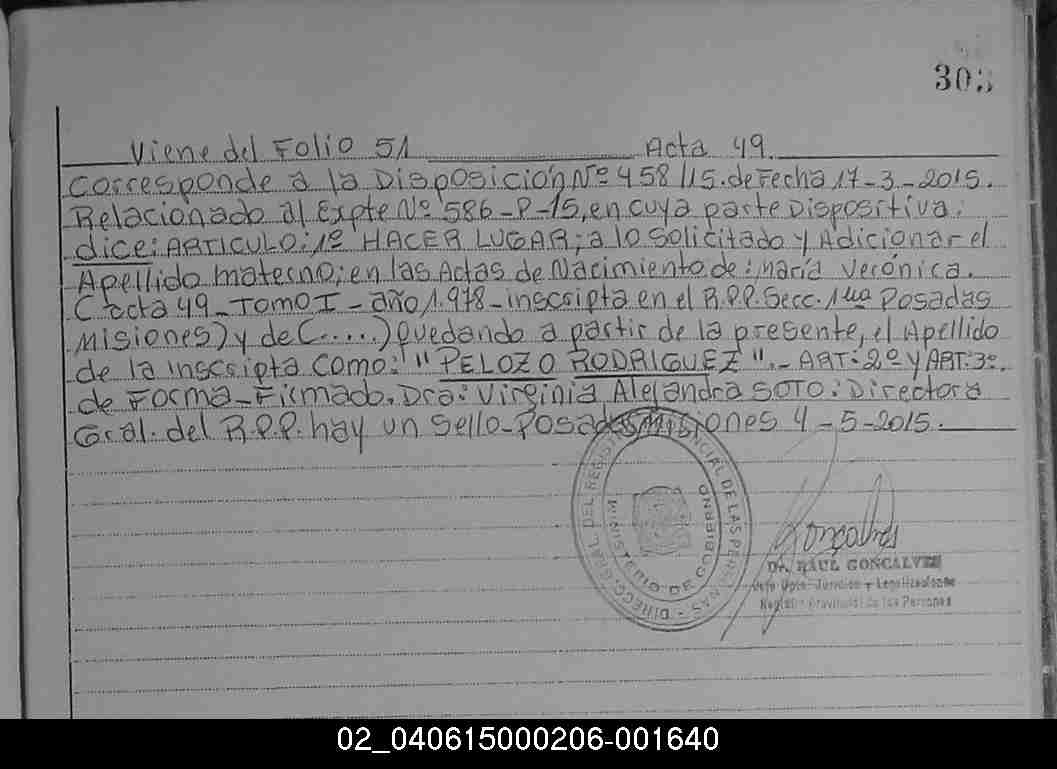 303
Viene del Folio 51 Acta 49.
Corresponde a la Disposición Nº 458/15. de Fecha 17-3-2015.
Relacionado al Expte Nº 586-P-15, en cuya parte Dispositiva:
dice: ARTICULO: 1º HACER LUGAR; a lo solicitado y Adicionar el
Apellido materno; en las Actas de Nacimiento de: María Verónica.
(acta 49 - TOMO I - año 1.978 - inscripta en el R.P.P. Secc. 1ª Posadas
Misiones) y de (.....) Quedando a partir de la presente, el Apellido
de la inscripta como: "PELOZO RODRIGUEZ". - ART: 2º y ART: 3º.
de Forma - Firmado. Dra: Virginia Alejandra SOTO: Directora
Gral. del R.P.P. hay un sello - Posadas Misiones 4-5-2015.
MINISTERIO DE GOBIERNO
Dr. RAUL GONCALVES
Jefe Dpto. Jurídico y Legalizaciones
Registro Provincial de las Personas
02_040615000206-001640